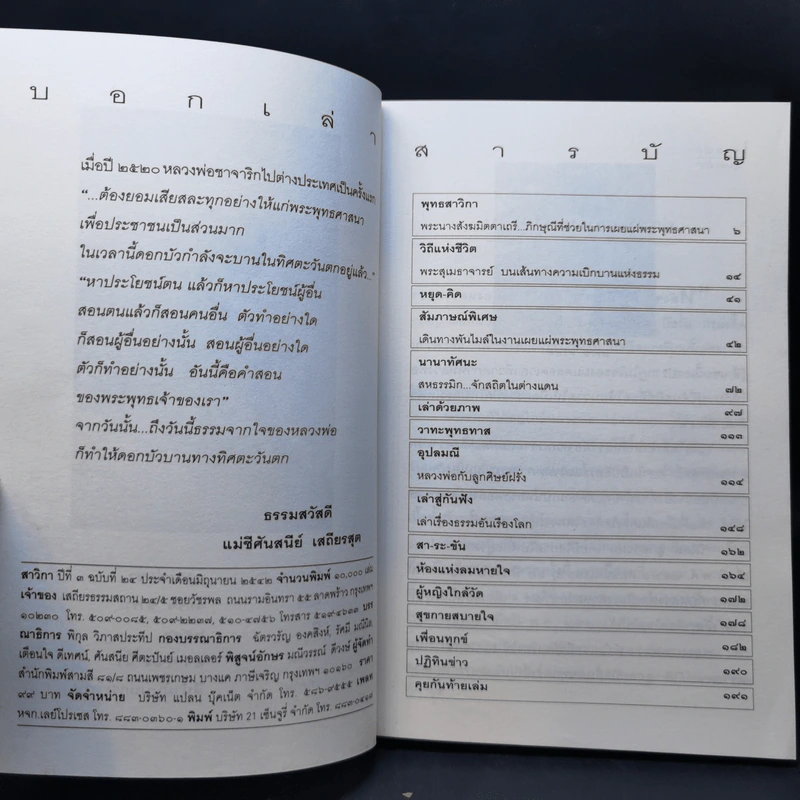 บอกเล่า
เมื่อปี ๒๕๒๐ หลวงพ่อชาจาริกไปต่างประเทศเป็นครั้งแรก
“...ต้องยอมเสียสละทุกอย่างให้แก่พระพุทธศาสนา
เพื่อประชาชนเป็นส่วนมาก
ในเวลานี้ดอกบัวกำลังจะบานในทิศตะวันตกอยู่แล้ว...”
“หาประโยชน์ตน แล้วก็หาประโยชน์ผู้อื่น
สอนตนแล้วก็สอนคนอื่น ตัวทำอย่างใด
ก็สอนผู้อื่นอย่างนั้น สอนผู้อื่นอย่างใด
ตัวก็ทำอย่างนั้น อันนี้คือคำสอน
ของพระพุทธเจ้าของเรา”
จากวันนั้น...ถึงวันนี้ธรรมจากใจของหลวงพ่อ
ก็ทำให้ดอกบัวบานทางทิศตะวันตก
ธรรมสวัสดี
แม่ชีศันสนีย์ เสถียรสุต
สาวิกา ปีที่ ๓ ฉบับที่ ๒๔ ประจำเดือนมิถุนายน ๒๕๔๒ จำนวนพิมพ์ ๑๐,๐๐๐ เล่ม
เจ้าของ เสถียรธรรมสถาน ๒๔/๕ ซอยวัชรพล ถนนรามอินทรา ๕๕ ลาดพร้าว กรุงเทพฯ
๑๐๒๓๐ โทร. ๕๐๙-๐๐๘๕, ๕๐๙-๒๒๓๗, ๕๑๐-๔๗๕๖ โทรสาร ๕๑๙-๔๖๓๓ บรร
ณาธิการ พิกุล วิภาสประทีป กองบรรณาธิการ ฉัตรวรัญ องคสิงห์, รัศมี มณีนิล,
เตือนใจ ดีเทศน์, ศันสนีย ศีตะปันย์ เมอลเลอร์ พิสูจน์อักษร มณีวรรณ์ ดีวงษ์ ผู้จัดทำ
สำนักพิมพ์สามสี ๘๑/๘ ถนนเพชรเกษม บางแค ภาษีเจริญ กรุงเทพฯ ๑๐๑๖๐ ราคา
๙๙ บาท จัดจำหน่าย บริษัท แปลน บุ๊คเน็ต จำกัด โทร. ๕๘๖-๙๕๕๕ เพลท
หจก.เลย์โปรเซส โทร. ๘๘๓-๐๓๖๐-๑ พิมพ์ บริษัท 21 เซ็นจูรี่ จำกัด โทร.
สารบัญ
พุทธสาวิกา
พระนางสังฆมิตตาเถรี...ภิกษุณีที่ช่วยในการเผยแผ่พระพุทธศาสนา ๖
วิถีแห่งชีวิต
พระสุเมธาจารย์ บนเส้นทางความเบิกบานแห่งธรรม ๑๔
หยุด-คิด ๔๑
สัมภาษณ์พิเศษ
เดินทางพันไมล์ในงานเผยแผ่พระพุทธศาสนา ๔๒
นานาทัศนะ
สหธรรมิก...จักสถิตในต่างแดน ๗๒
เล่าด้วยภาพ ๙๗
วาทะพุทธทาส ๑๑๓
อุปลมณี
หลวงพ่อกับลูกศิษย์ฝรั่ง ๑๑๔
เล่าสู่กันฟัง
เล่าเรื่องธรรมอันเรืองโลก ๑๔๘
สา-ระ-ขัน ๑๖๒
ห้องแห่งลมหายใจ ๑๖๔
ผู้หญิงใกล้วัด ๑๗๒
สุขกายสบายใจ ๑๗๘
เพื่อนทุกข์ ๑๘๒
ปฏิทินข่าว ๑๙๐
คุยกันท้ายเล่ม ๑๙๑